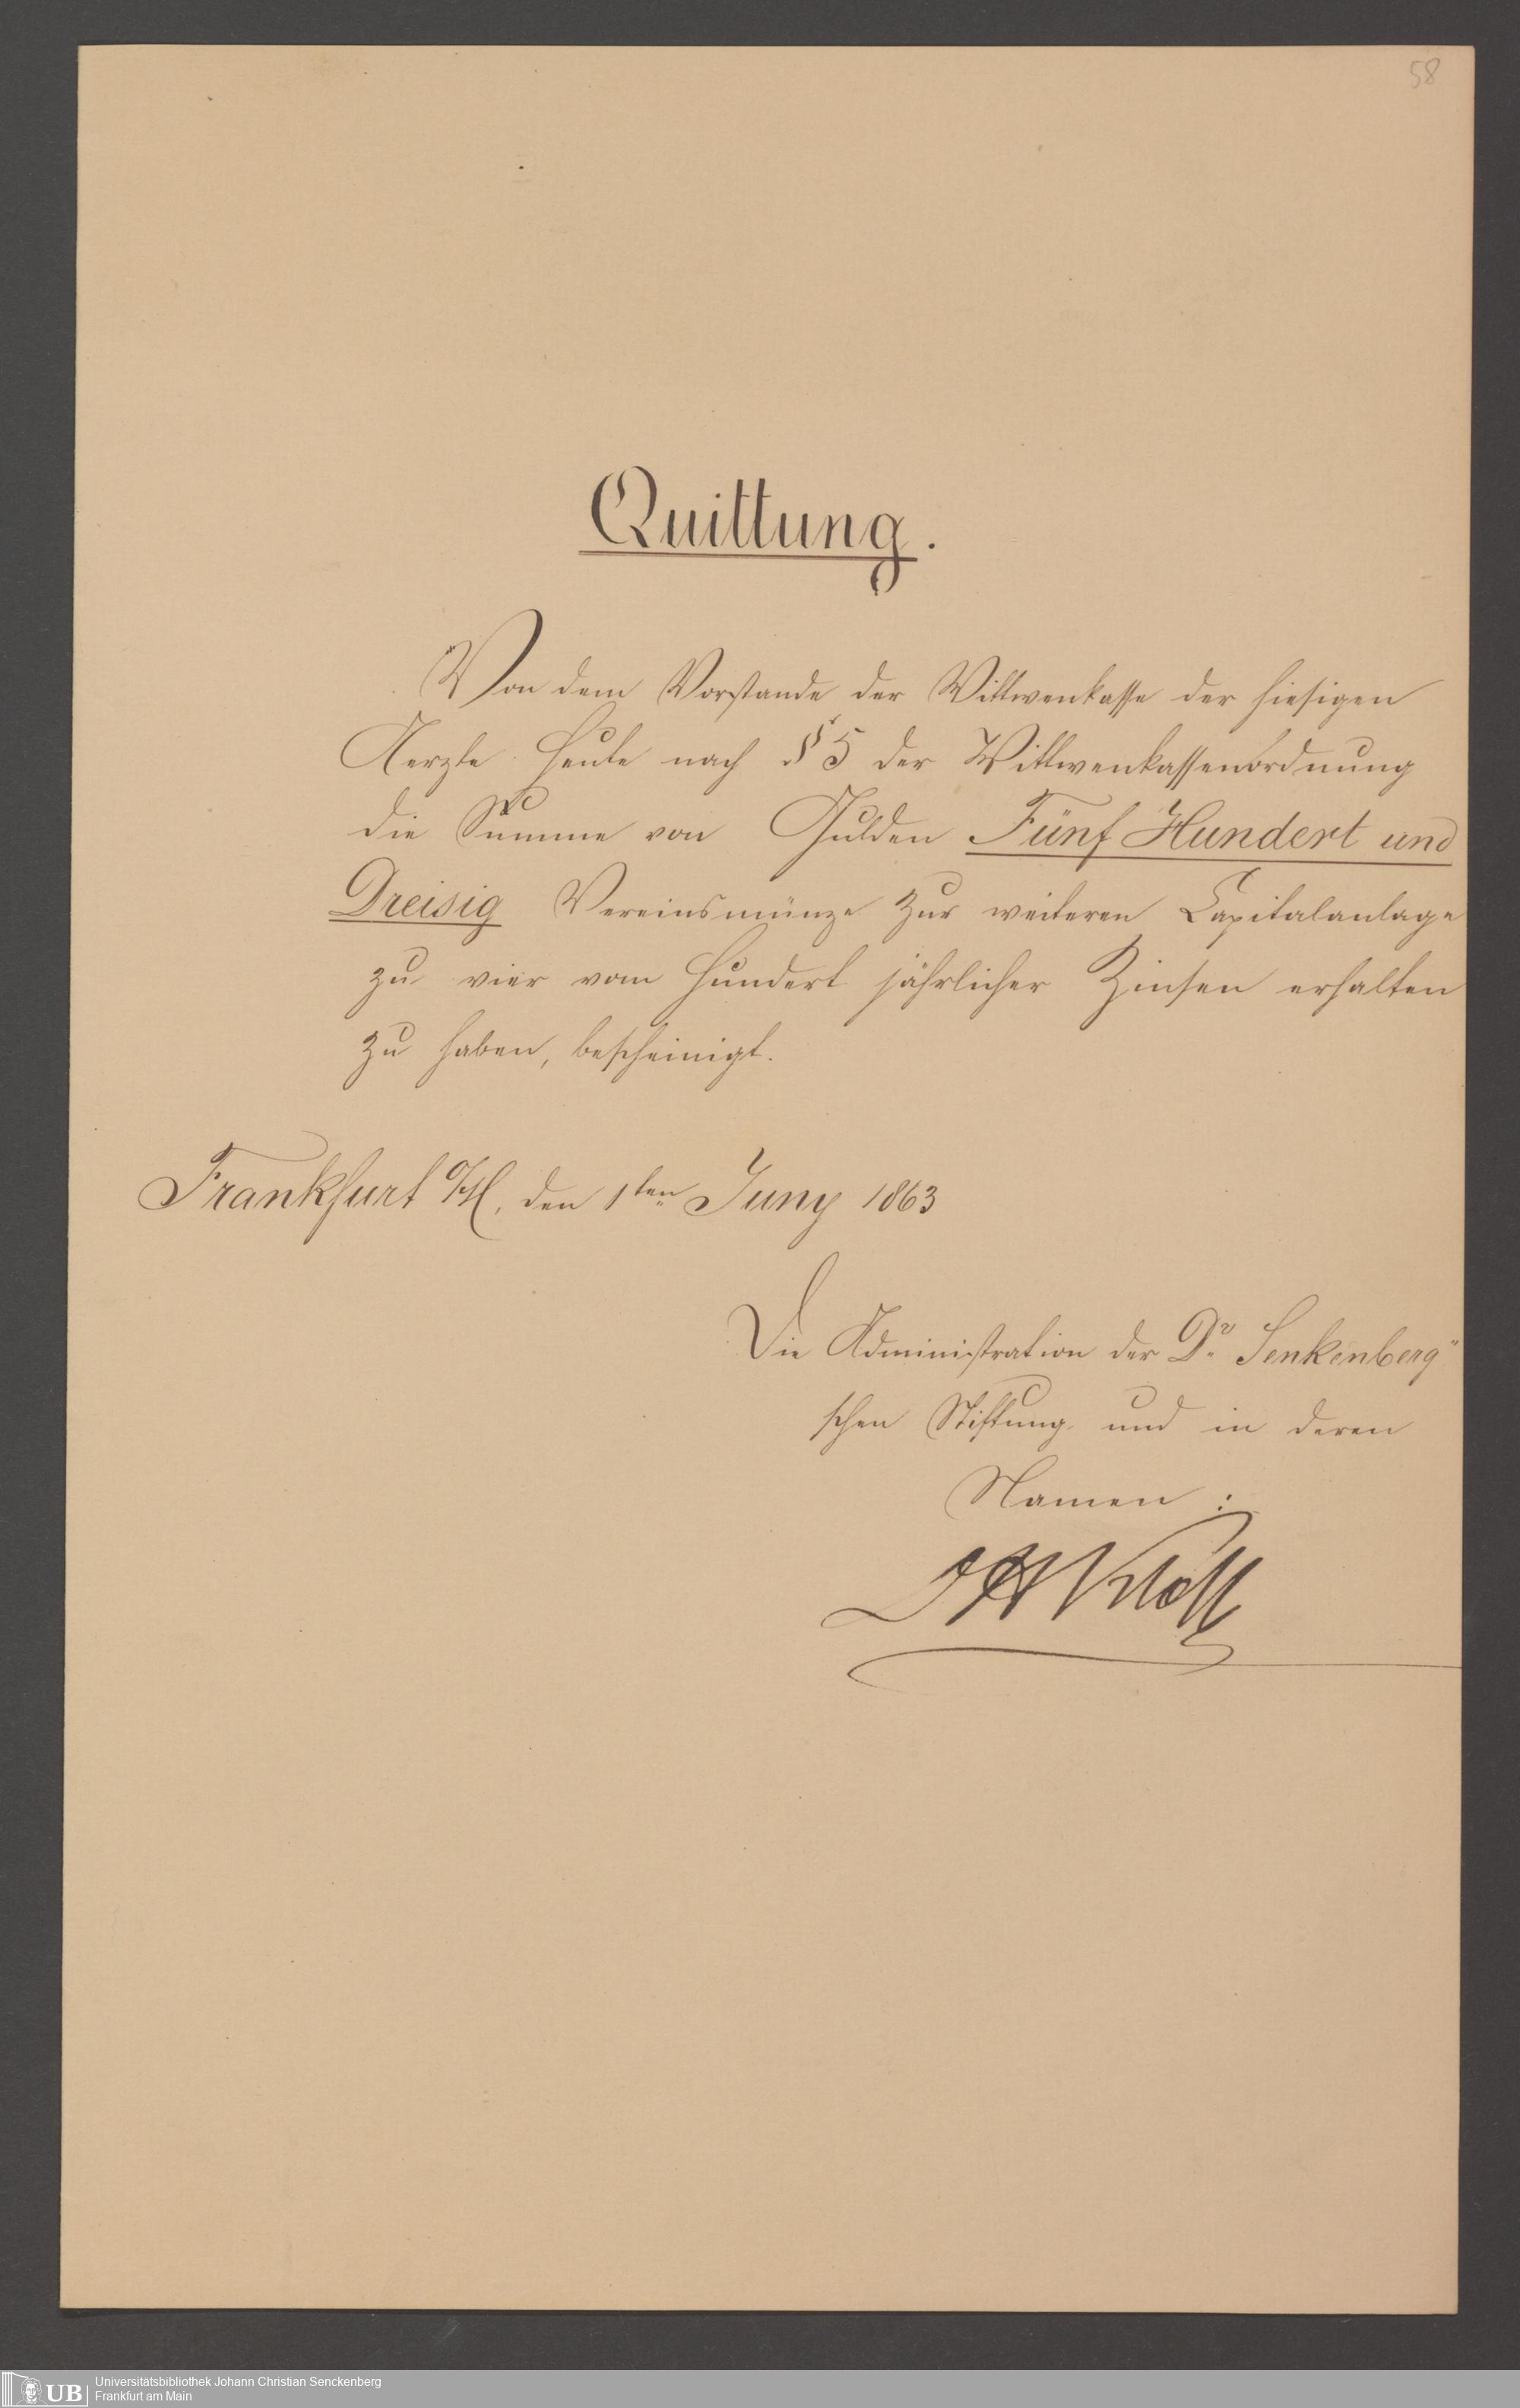 58
Quittung.
Von dem Vorstande der Wittwenkasse der hiesigen
Aerzte heute nach § 5 der Wittwenkassenordnung
die Summe von Gulden Fünf Hundert und
Dreisig Vereinsmünze zur weiteren Capitalanlage
zu vier vom Hundert jährlicher Zinsen erhalten
zu haben, bescheinigt.
Frankfurt a/M, den 1ten Juny 1863
Die Administration der Dr. Senkenberg"
schen Stiftung und in deren
Namen :
UB
Universitätsbibliothek Johann Christian Senckenberg
Frankfurt am Main